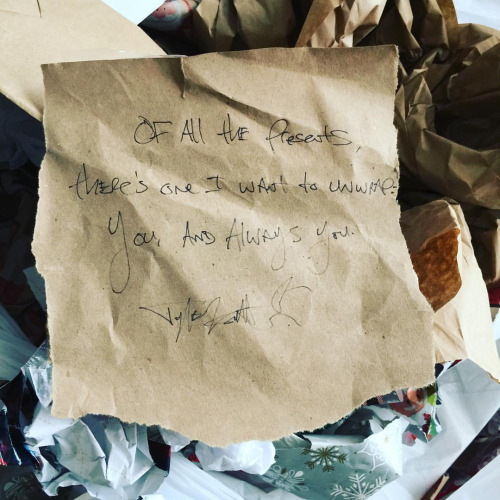 OF All the Presents,
there's one I want to unwrap:
You. And Always You.